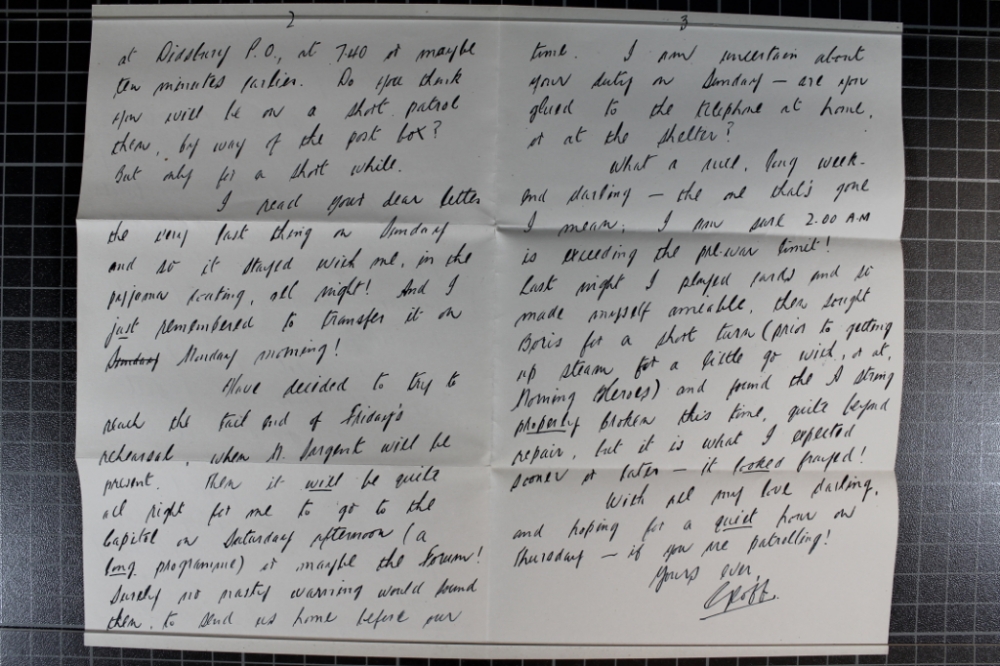 2
at Didsbury P.O., at 7.40 or maybe
ten minutes earlier. Do you think
you will be on a short patrol
then, by way of the post box?
But only for a short while.
I read your dear letter
the very last thing on Sunday
and so it stayed with me, in the
pyjama coating, all night! And I
just remembered to transfer it on
Sunday Monday morning!
Have decided to try to
reach the tail end of Friday's
rehearsal, when Dr. Sargent will be
present. Then it will be quite
all right for me to go to the
Capitol on Saturday afternoon (a
long programme) or maybe the Forum!
Surely no nasty warning would sound
then, to send us home before our
3
time. I am uncertain about
your duty on Sunday — are you
glued to the telephone at home,
or at the shelter?
What a nice, long week-
end darling — the one that's gone
I mean; I am sure 2.00 A.M
is exceeding the pre-war limit!
Last night I played cards and so
made myself amiable, then sought
Boris for a short turn (prior to getting
up steam for a little go with, or at,
Morning Heroes) and found the A string
properly broken this time, quite beyond
repair, but it is what I expected
sooner or later — it looked frayed!
With all my love darling,
and hoping for a quiet hour on
Thursday — if you are patrolling!
Yours ever,
Geoff.